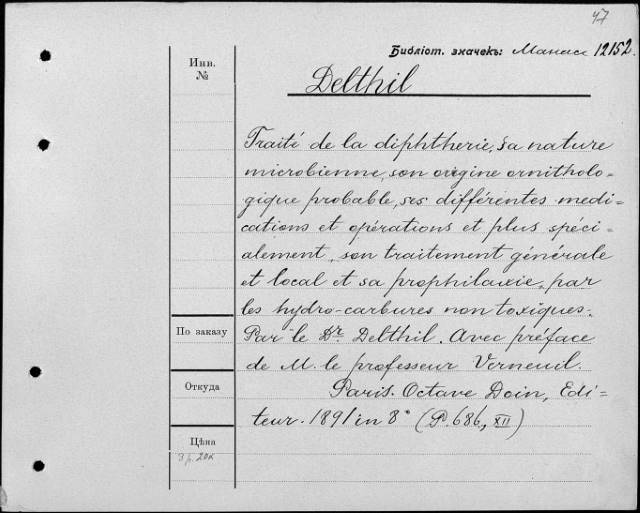 47
Библіот. значекъ: Манасс 12152.
Инв.
№
Delthil
Traité de la diphtherie, sa nature
microbienne, son origine ornitholo=
gique probable, ses différentes medi=
cations et opérations et plus spéci=
alement, son traitement générale
et local et sa prophilaxie, par
les hydro-carbures non toxiques.
По заказу
Par le Dr. Delthil. Avec préface
de M. le professeur Verneuil.
Откуда
Paris. Octave Doin, Edi=
teur. 1891 in 8° (P. 686, XII)
Цѣна
3 р. 20 к